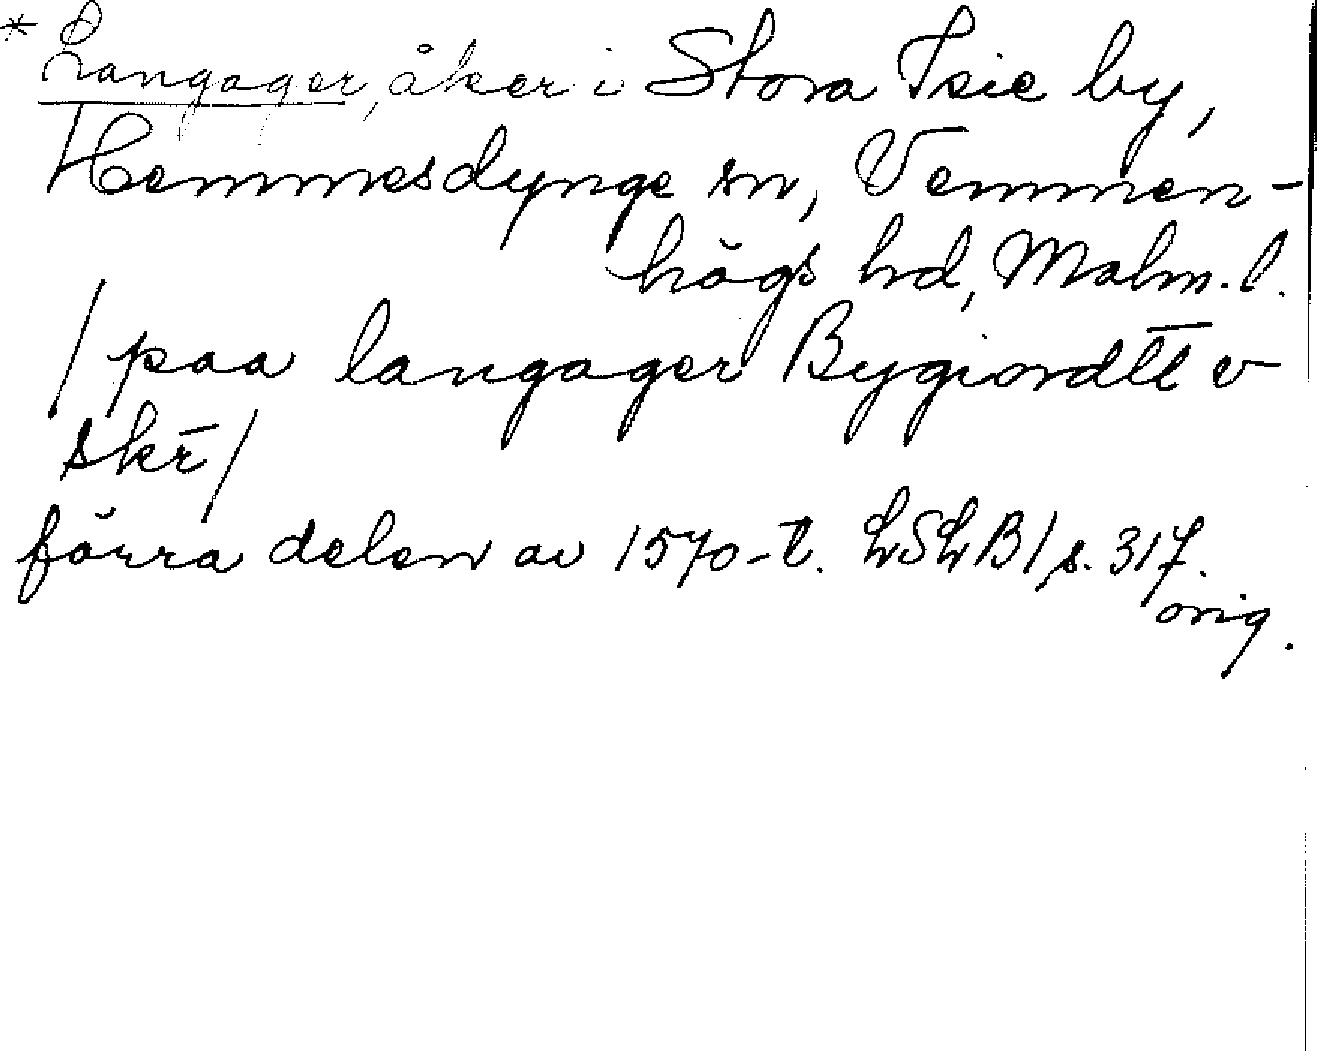 * Langager, åker i Stora Isie by,
Hemmesdynge sn, Vemmen-
högs hd, Malm. l.
/ paa langager Bygiordtt̅ v
skr̅ /
förra delen av 1570-t. LSLB1 s. 317.
orig.